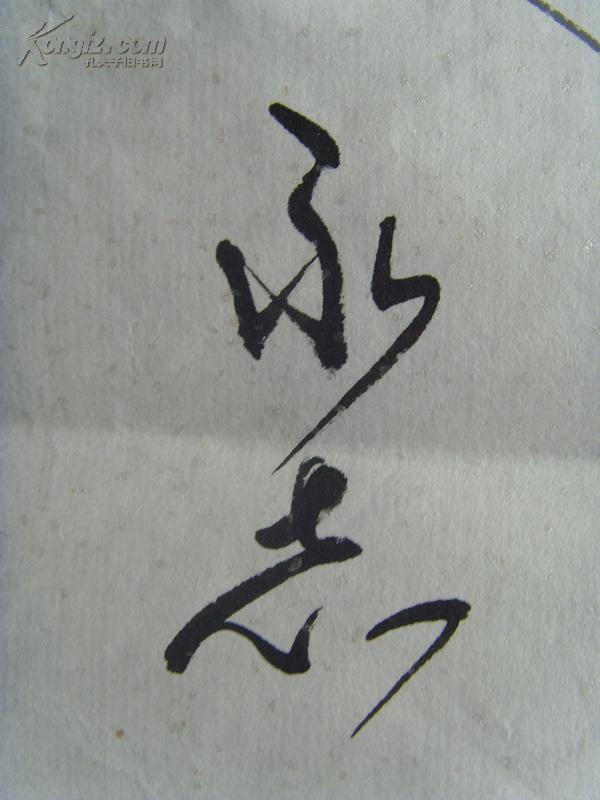 Kongfz.com
孔夫子旧书网
永志